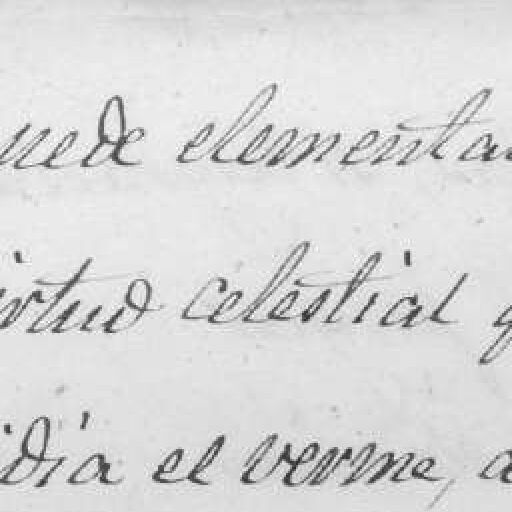 uede elementa
irtud celestial q
idia el verme, a